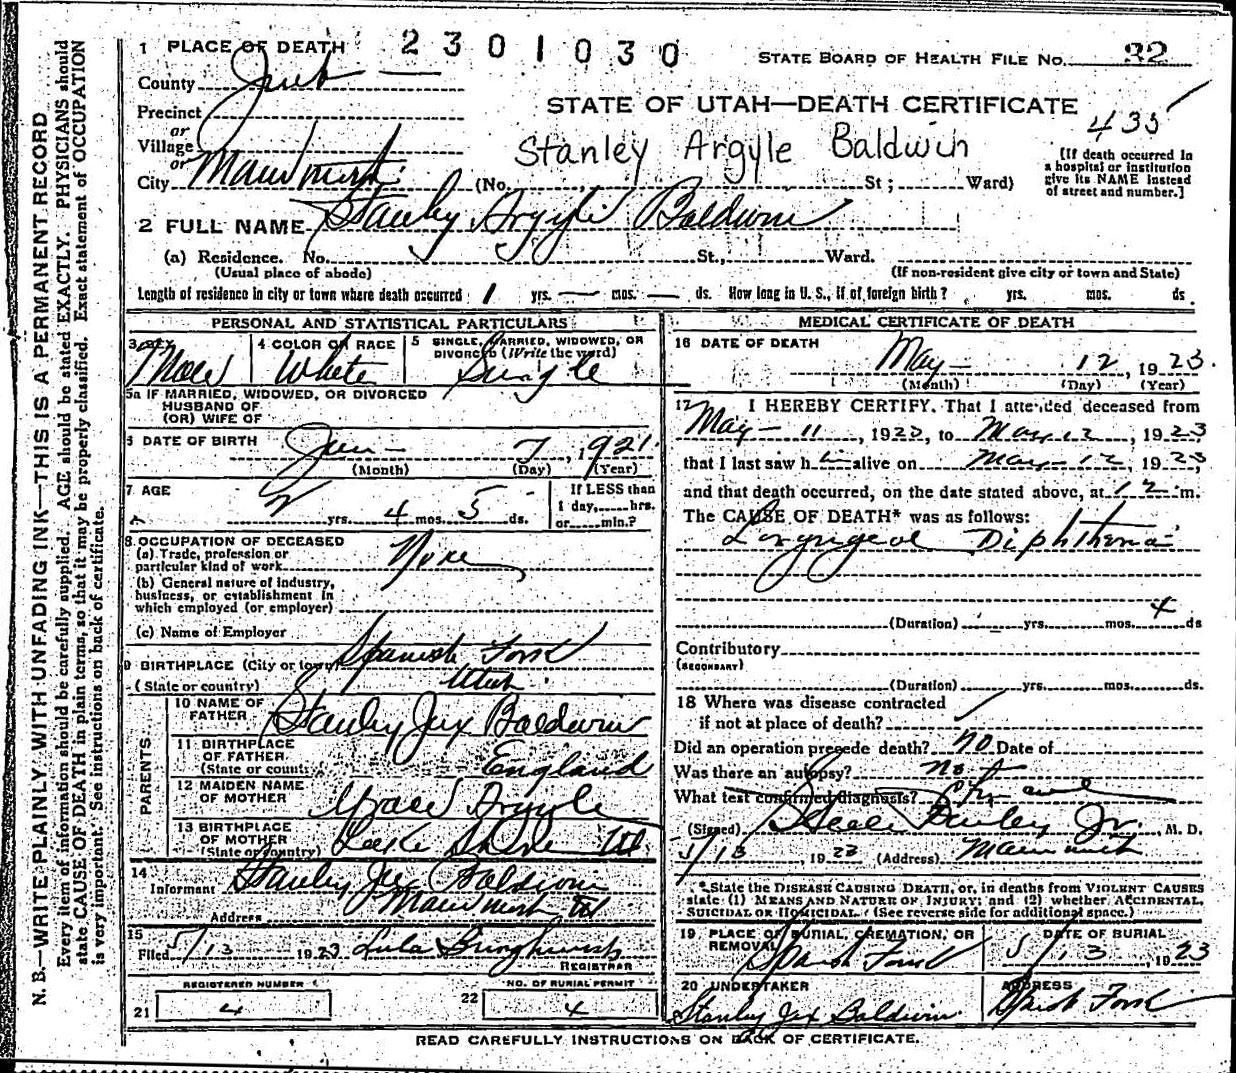 1 PLACE OF DEATH 2301030
STATE BOARD OF HEALTH FILE No. 32
County Juab
Precinct
or
Village
or
City Mammoth
STATE OF UTAH—DEATH CERTIFICATE
435
Stanley Argyle Baldwin
(No. St; Ward)
[If death occurred in
a hospital or institution
give its NAME instead
of street and number.]
2 FULL NAME Stanley Argyle Baldwin
(a) Residence. No. St., Ward.
(Usual place of abode) (If non-resident give city or town and State)
Length of residence in city or town where death occurred 1 yrs. — mos. — ds. How long in U. S., if of foreign birth? yrs. mos. ds.
PERSONAL AND STATISTICAL PARTICULARS
3 SEX 4 COLOR OR RACE 5 SINGLE, MARRIED, WIDOWED, OR
DIVORCED (Write the word)
Male White Single
5a IF MARRIED, WIDOWED, OR DIVORCED
HUSBAND OF
(OR) WIFE OF
6 DATE OF BIRTH Jan— 7, 1921
(Month) (Day) (Year)
7 AGE 2 yrs. 4 mos. 5 ds.
If LESS than
1 day, hrs.
or min.?
8 OCCUPATION OF DECEASED
(a) Trade, profession or
particular kind of work None
(b) General nature of industry,
business, or establishment in
which employed (or employer)
(c) Name of Employer
9 BIRTHPLACE (City or town) Spanish Fork
(State or country) Utah
PARENTS
10 NAME OF
FATHER Stanley Jex Baldwin
11 BIRTHPLACE
OF FATHER
(State or country) England
12 MAIDEN NAME
OF MOTHER Grace Argyle
13 BIRTHPLACE
OF MOTHER
(State or country) Lake Shore Ut
14
Informant Stanley Jex Baldwin
Address Mammoth Ut
15
Filed 5/13 1923 Lula
REGISTRAR
REGISTERED NUMBER
21 4
NO. OF BURIAL PERMIT
22 4
MEDICAL CERTIFICATE OF DEATH
16 DATE OF DEATH
May— 12, 1923.
(Month) (Day) (Year)
17 I HEREBY CERTIFY. That I attended deceased from
May— 11, 1923, to May 12, 1923
that I last saw him alive on May—12, 1923,
and that death occurred, on the date stated above, at 12 m.
The CAUSE OF DEATH* was as follows:
Laryngeal Diphtheria
(Duration) yrs. mos. 4 ds
Contributory
(SECONDARY)
(Duration) yrs. mos. ds.
18 Where was disease contracted
if not at place of death?
Did an operation precede death? no Date of
Was there an autopsy? no
What test confirmed diagnosis?
(Signed) Steele Bailey Jr. M. D.
5/13, 1923 (Address) Mammoth
*State the DISEASE CAUSING DEATH, or, in deaths from VIOLENT CAUSES
state (1) MEANS AND NATURE OF INJURY; and (2) whether ACCIDENTAL,
SUICIDAL OR HOMICIDAL. (See reverse side for additional space.)
19 PLACE OF BURIAL, CREMATION, OR
REMOVAL Spanish Fork
DATE OF BURIAL
5/13, 1923
20 UNDERTAKER
Stanley Jex Baldwin
ADDRESS
Spanish Fork
READ CAREFULLY INSTRUCTIONS ON BACK OF CERTIFICATE.
N. B.—WRITE PLAINLY WITH UNFADING INK—THIS IS A PERMANENT RECORD
Every item of information should be carefully supplied. AGE should be stated EXACTLY. PHYSICIANS should
state CAUSE OF DEATH in plain terms, so that it may be properly classified. Exact statement of OCCUPATION
is very important. See instructions on back of certificate.